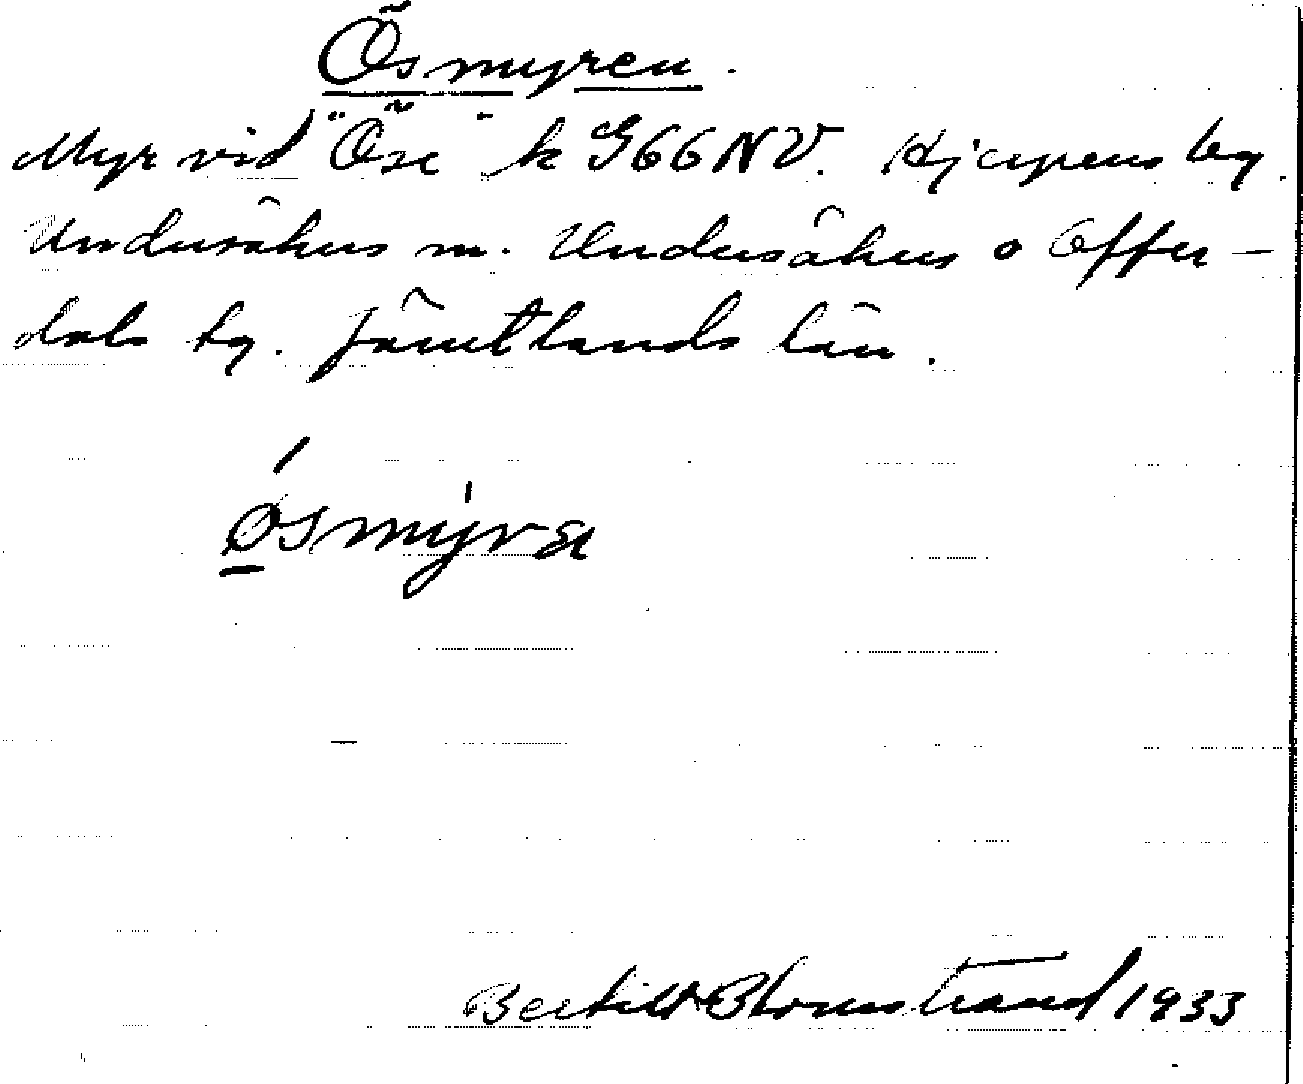 Ösmyren.
Myr vid "Öse" k G66NV. by.
Undersåkers sn. Undersåkers o Offer-
dals tg. Jämtlands län.
Bertil Blomstrand 1933